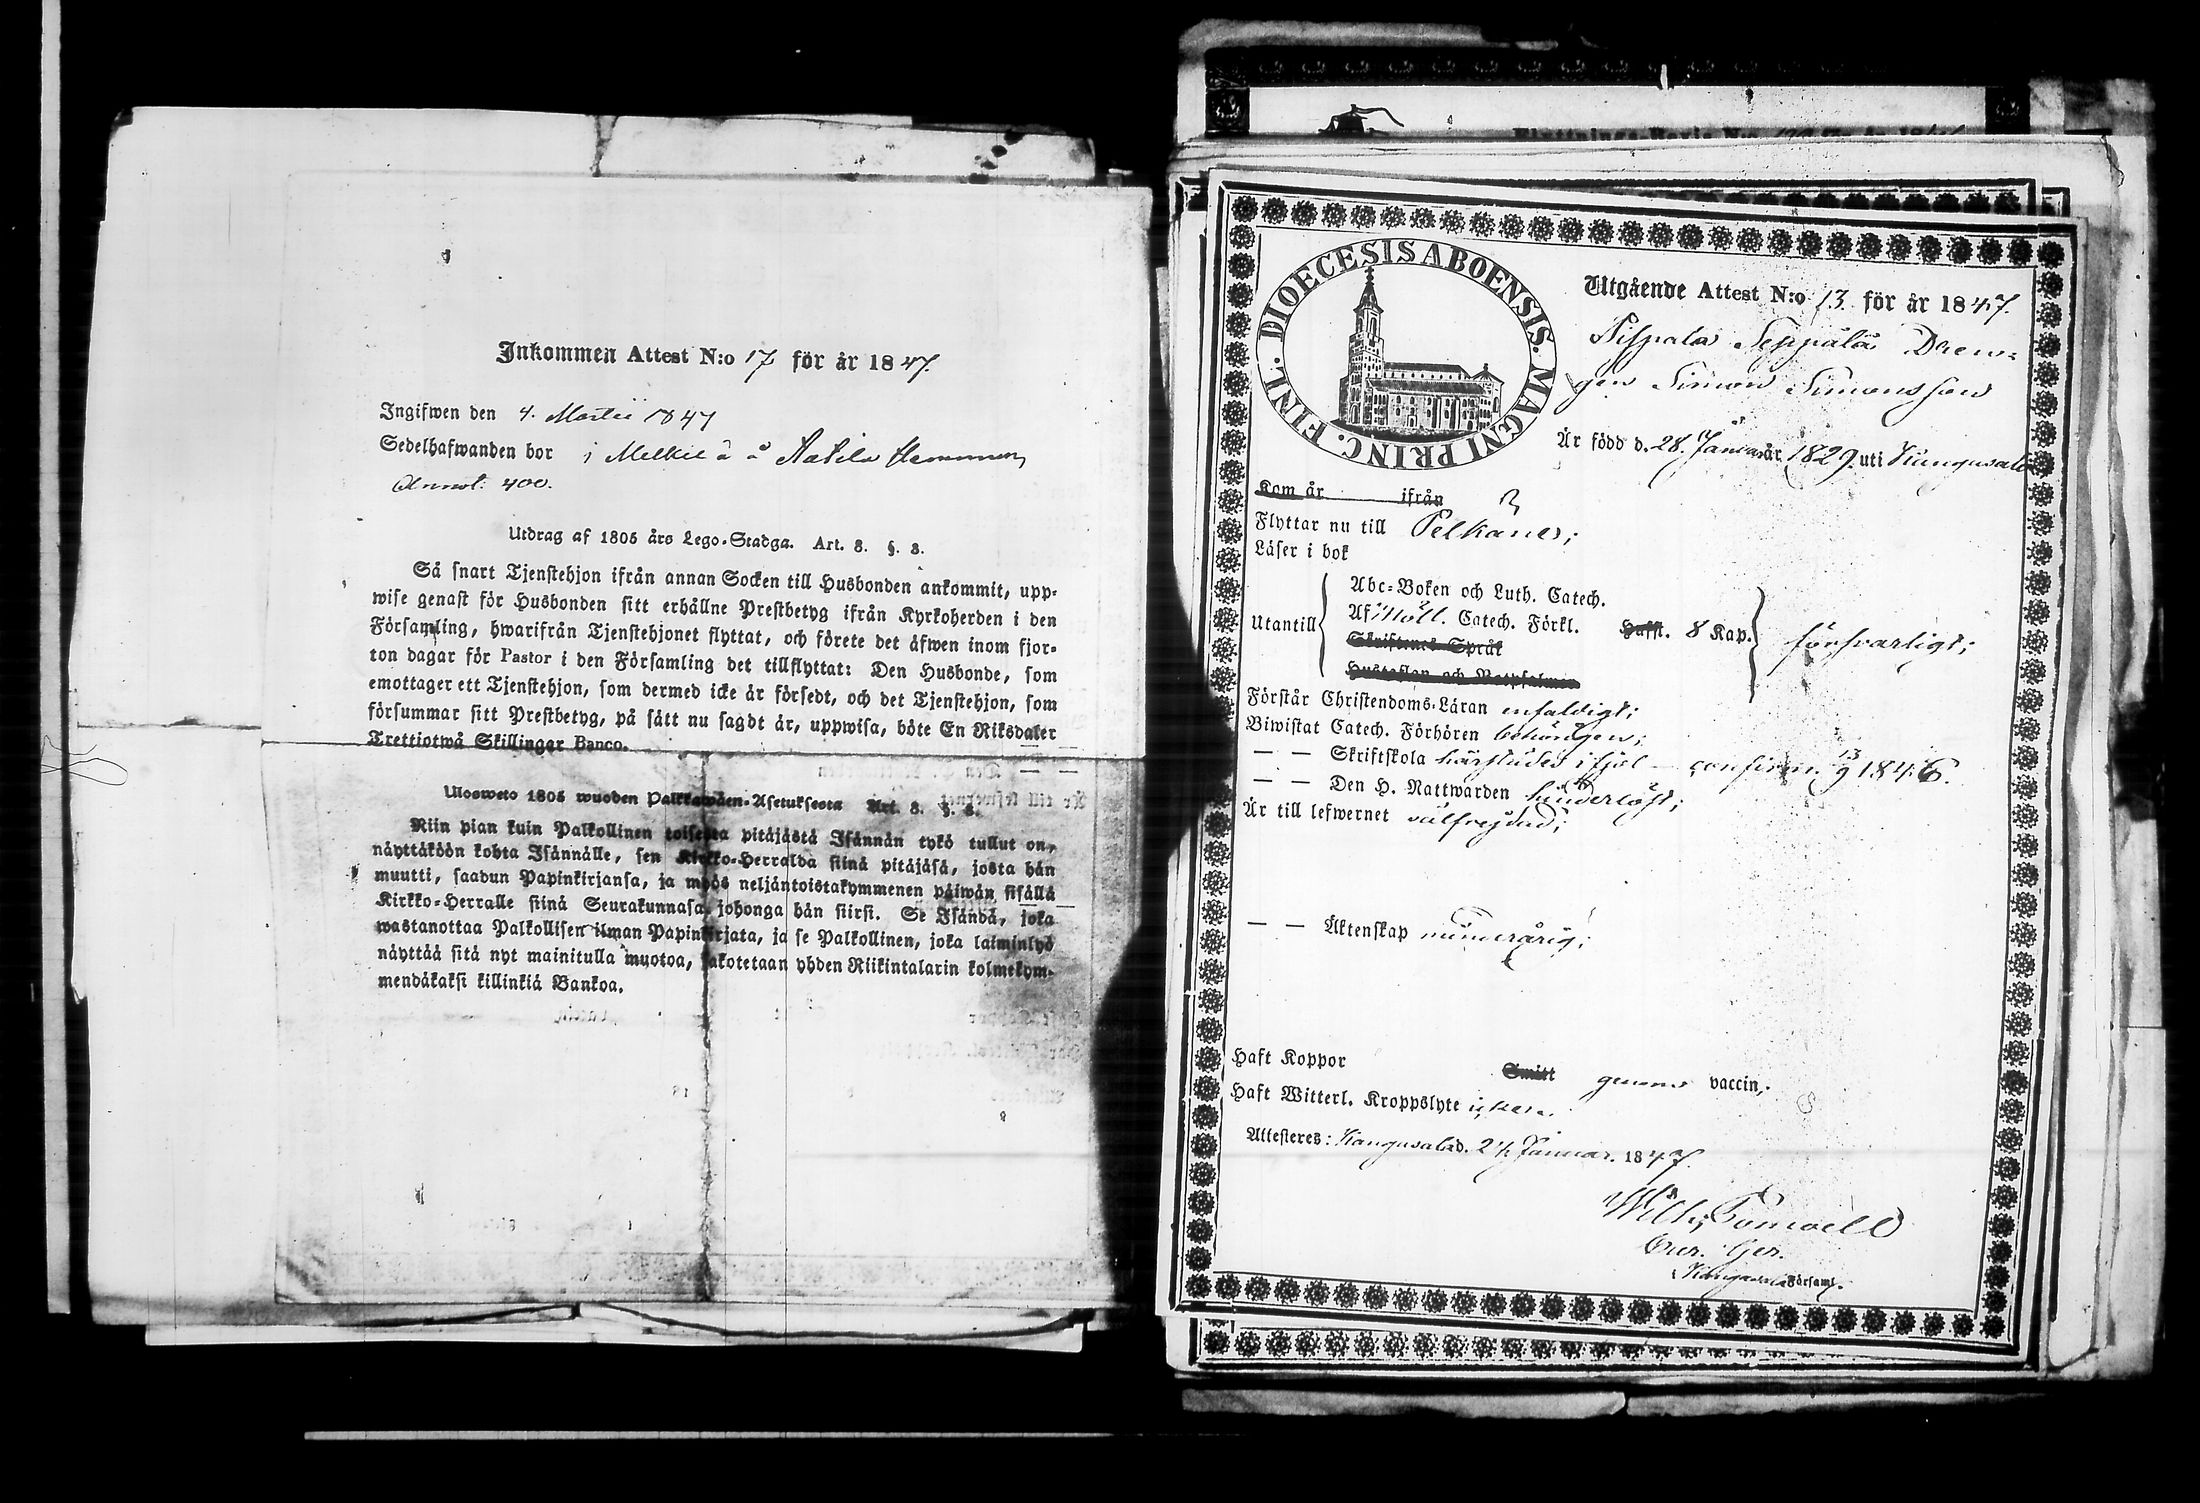 Inkommen Attest N:o 17 för år 1847.
Ingifwen den 4. Martii 1847
Sedelhafwanden bor i Melkilä
Annot. 400.
Utdrag af 1805 års Lego-Stadga. Art. 8. §. 8.
Så snart Tjenstehjon ifrån annan Socken till Husbonden ankommit, upp-
wise genast för Husbonden sitt erhållne Prestbetyg ifrån Kyrkoherden i den
Församling, hwarifrån Tjenstehjonet flyttat, och förete det äfwen inom fjor-
ton dagar för Pastor i den Församling det tillflyttat: Den Husbonde, som
emottager ett Tjenstehjon, som dermed icke är försedt, och det Tjenstehjon, som
försummar sitt Prestbetyg, på sätt nu sagdt är, uppwisa, böte En Riksdaler
Trettiotwå Skillingar Banco.
Uloswето 1805 wuoden Palkkawäen-Asetuksesta Art. 8. §. 8.
Niin pian kuin Palkollinen toisesta pitäjästä Isännän tykö tullut on,
näyttäköön kohta Isännälle, sen Kirkko-Herralda siinä pitäjäsä, josta hän
muutti, saadun Papinkirjansa, ja myös neljäntoistakymmenen päiwän sisällä
Kirkko-Herralle siinä Seurakunnasa, johonga hän siirsi. Se Isändä, joka
wastanottaa Palkollisen ilman Papinkirjata, ja se Palkollinen, joka laiminlyö
näyttää sitä nyt mainitulla muotoa, sakotetaan yhden Riikintalarin kolmekym-
mendäkaksi killinkiä Bankoa.
DIOECESIS ABOENSIS. MAGNI PRINC. FINL.
Utgående Attest N:o 13 för år 1847.
Pispala Seppälä Dren-
gen Simon Simonsson
Är född d. 28. Januari år 1829. uti Kangasala
Kom år ifrån
Flyttar nu till Pelkäne;
Läser i bok
Utantill
Abc-Boken och Luth. Catech.
Af Möll. Catech. Förkl. Hufst. 8 Kap.
Skriftenes Språk
Hustaflan och Botpsalmer
försvarligt;
Förstår Christendoms-Läran enfaldigt;
Biwistat Catech. Förhören behörigen;
— — Skriftskola härstädes i fjol – confirm. 13/9 1846.
— — Den H. Nattwarden hinderlöst;
Är till lefwernet välfrejdad;
— — Äktenskap minderårig;
Haft Koppor Smitt genom vaccin;
Haft Witterl. Kroppslyte icke
Attesteres: Kangasala d. 24 Januar. 1847.
Församl.